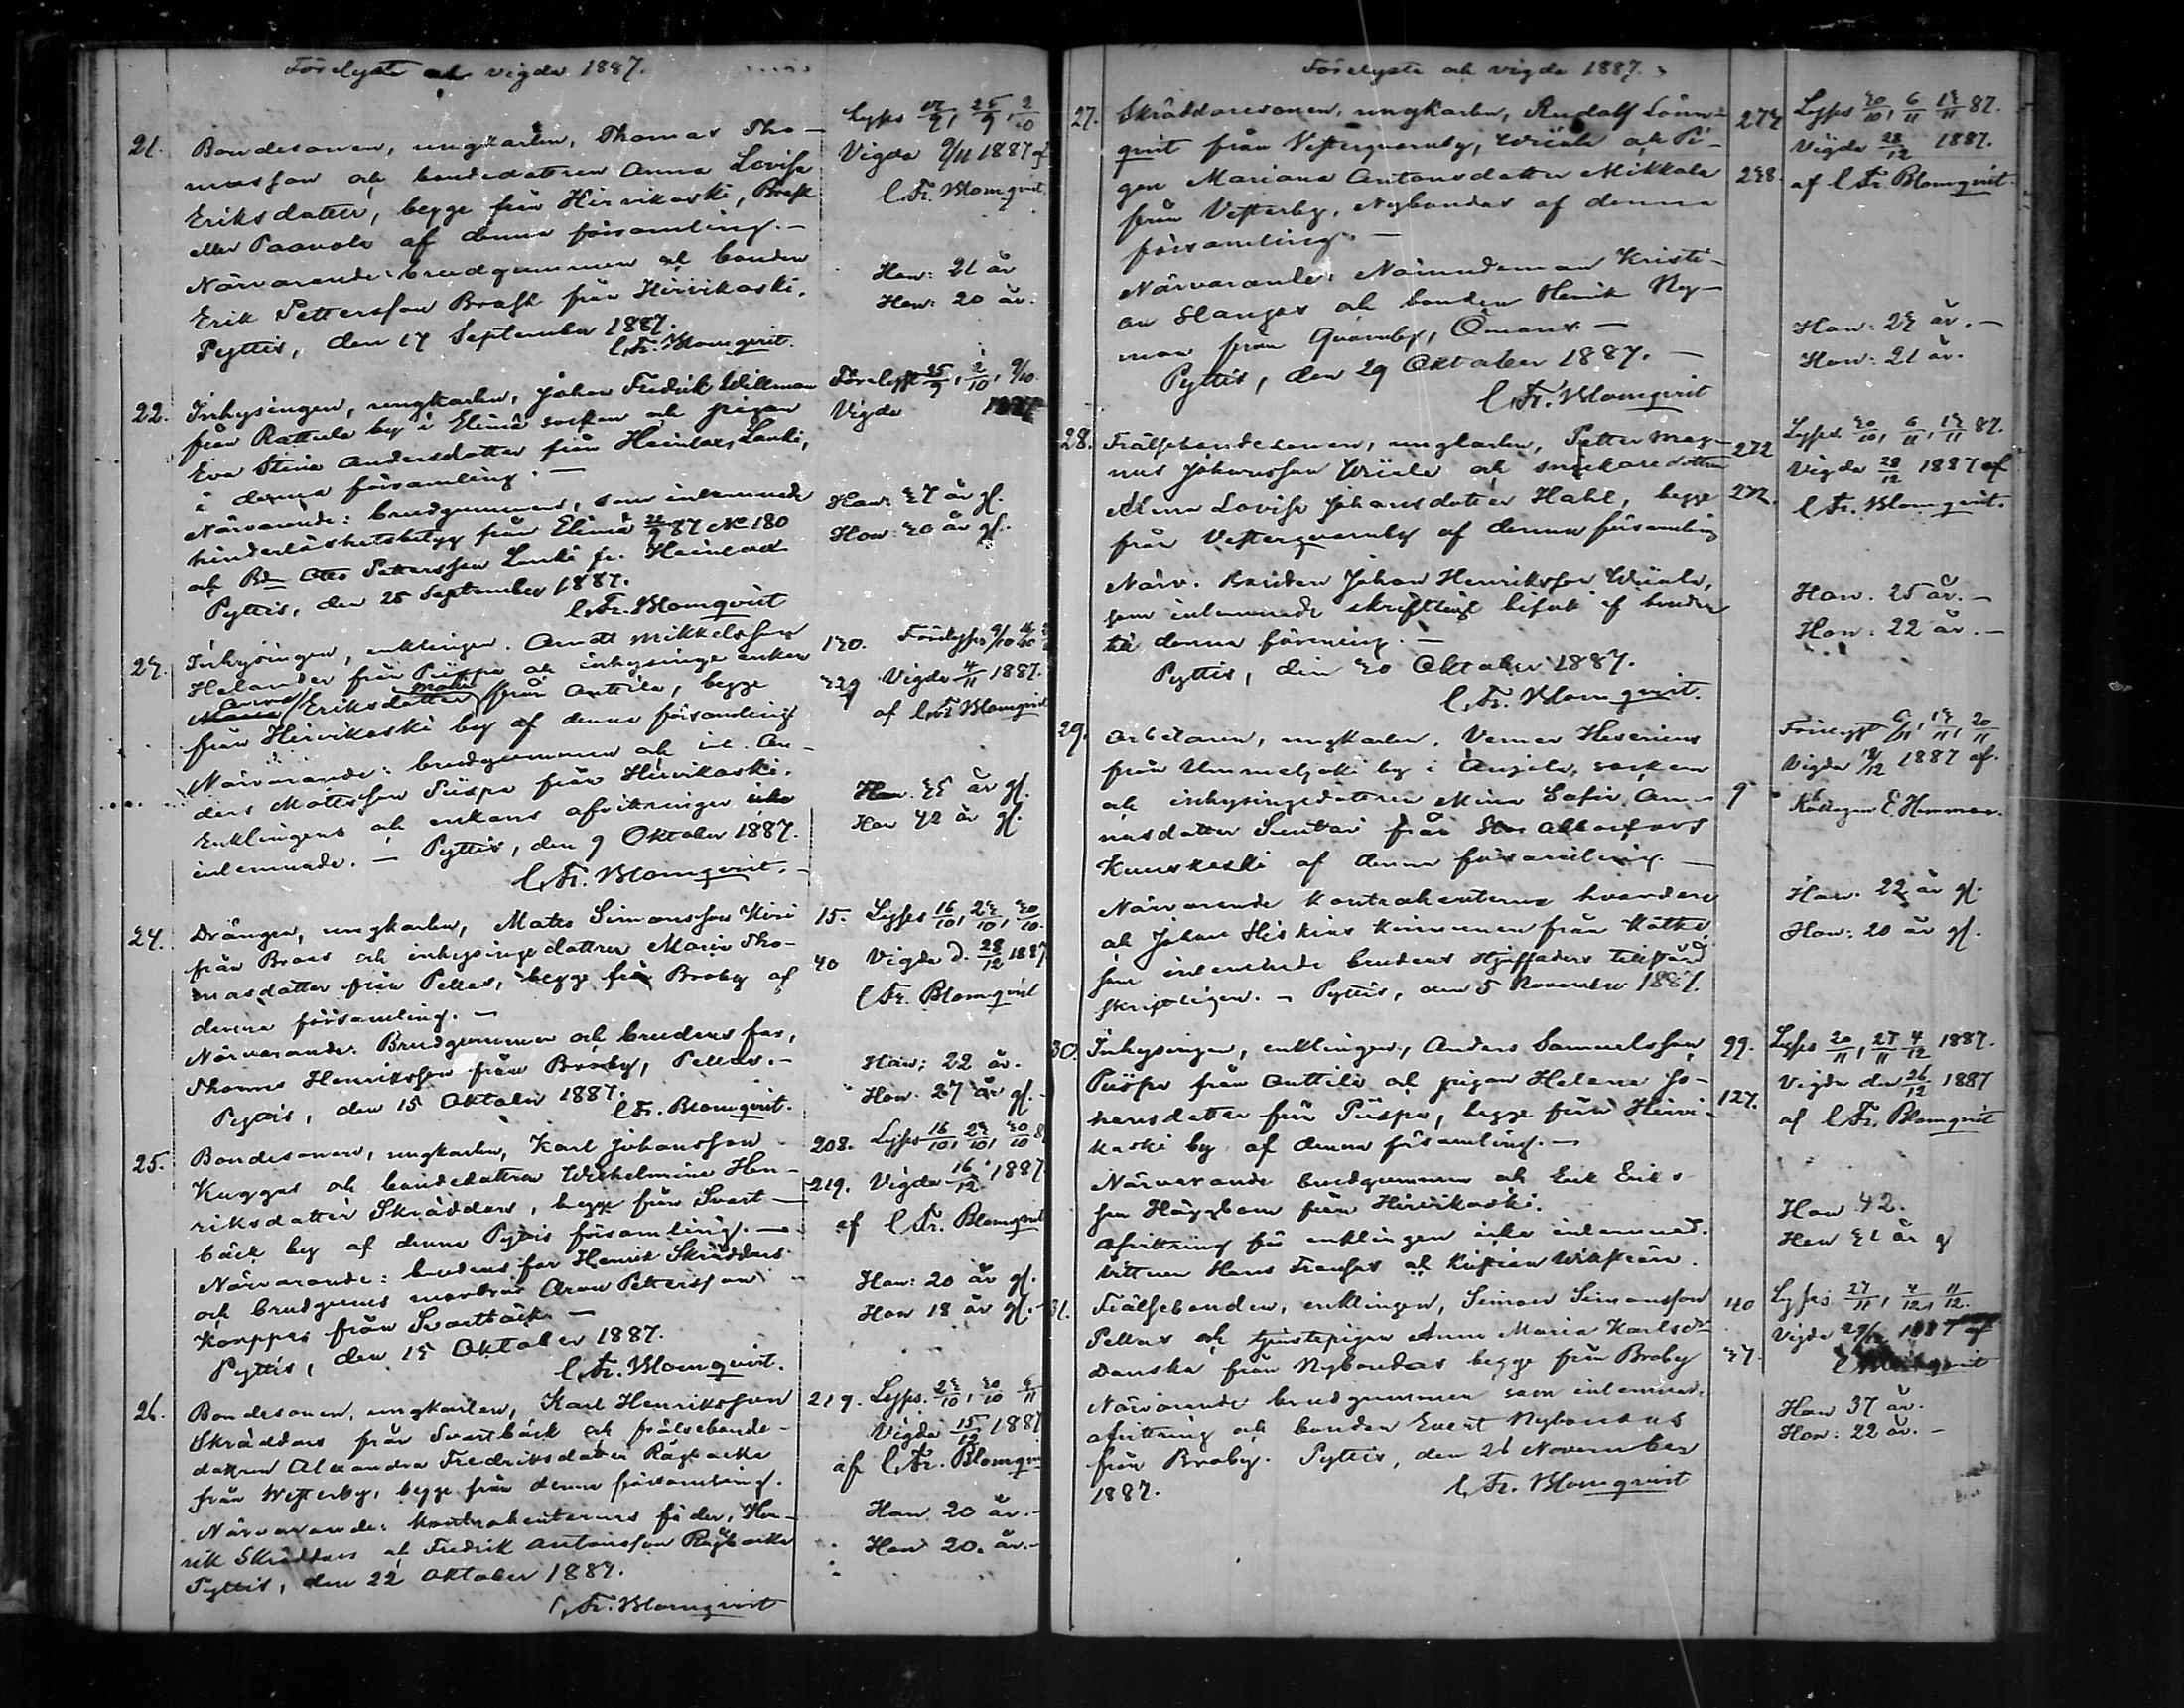 Förelyste och vigde 1887.
21. Bondesonen, ungkarlen, Thomas Tho-
masson och bondedottren Anna Lovisa
Eriksdotter, begge från Hirvikoski, Brask
eller Paavola af denna församling. —
Närvarande: brudgummen och bonden
Erik Pettersson Brask från Hirvikoski.
Pyttis, den 17 September 1887.
C. Fr. Blomqvist.
Lyses 18/9, 25/9, 2/10
Vigda 9/11 1887 af
C. Fr. Blomqvist.
Han: 21 år
Hon: 20 år.
22. Inhysingen, ungkarlen, Johan Fredrik Willman
från Rattula by i Elimä socken och pigan
Eva Stina Andersdotter från Heinlax, Lanki,
i denna församling. —
Närvarande: brudgummen, som inlemnade
hinderlöshetsbetyg från Elimä 87 No 180
och Bdn Otto Pettersson Lanki fr. Heinlax
Pyttis, den 25 September 1887.
C. Fr. Blomqvist
Förelyst 25/9, 2/10, 9/10
Vigda
Han: 37 år gl.
Hon: 30 år gl.
23. Inhysingen, enklingen, Mikkelsson
Helander från Piispa och inhysinge enkan
Anna Eriksdotter från Anttila, begge
från Hirvikoski by af denna församling
Närvarande: brudgummen och inh. An-
ders Mattsson Piispa från Hirvikoski.
Enklingens och enkans afvittringar icke
inlemnade. — Pyttis, den 9 Oktober 1887.
C. Fr. Blomqvist. —
130. Förelyses 9/10 16/10
339 Vigda 4/11 1887.
af C. Fr. Blomqvist
Han. 35 år gl.
Hon 42 år gl.
24. Drängen, ungkarlen, Matts Simonsson Kiri
från Broas och inhysinge dottren Maria Tho-
masdotter från Pellas, begge från Broby af
denna församling. —
Närvarande: Brudgummen och brudens far,
Thomas Henriksson från Broby, Pellas. —
Pyttis, den 15 Oktober 1887.
C. Fr. Blomqvist.
15. Lyses 16/10, 23/10, 30/10.
40 Vigda d. 28/12 1887
C. Fr. Blomqvist
Han: 22 år.
Hon. 27 år gl. —
25. Bondesonen, ungkarlen, Karl Johansson
Kuggas och bondedottren Wilhelmina Hen-
riksdotter Skräddars, begge från Svart-
bäck by af denna Pyttis församling. —
Närvarande: brudens far Henrik Skräddars
och brudgums morbror Aron Pettersson
Korppas från Svartbäck. —
Pyttis, den 15 Oktober 1887.
C. Fr. Blomqvist.
208. Lyses 16/10, 23/10, 30/10
219. Vigda 16/12 1887
af C. Fr. Blomqvist
Han: 20 år gl.
Hon 18 år gl. —
26. Bondesonen, ungkarlen, Karl Henriksson
Skräddars från Svartbäck och frälsebonde-
dottren Alexandra Fredriksdotter Rågbacka
från Westerby, begge från denna församling.
Närvarande: Kontrahenternes fäder, Hen-
rik Skräddars och Fredrik Antonsson Rågbacka
Pyttis, den 22 Oktober 1887.
C. Fr. Blomqvist
219. Lyses. 23/10, 30/10 6/11
Vigda 15/12 1887
af C. Fr. Blomqvist
Han 20 år. —
Hon 20. år. —
Förelyste och vigde 1887.
27. Skräddaresonen, ungkarlen, Rudolf Lönn-
qvist från Vesterqvarnby, Wiiala och Pi-
gan Mariana Antonsdotter Mikkola
från Vesterby, Nybondas af denna
församling. —
Närvarande: Nämndeman Kristi-
an Slangas och bonden Henrik Ny-
man från Qvarnby, Ömans. —
Pyttis, den 29 Oktober 1887. —
C. Fr. Blomqvist
273
238.
Lyses 30/10, 6/11 13/11 87.
Vigda 28/12 1887.
af C. Fr. Blomqvist.
Han: 23 år. —
Hon: 21 år.
28. Frälsebondesonen, ungkarlen, Petter Mag-
nus Johansson Wiiala och snickaredottren
Alma Lovisa Johansdotter Hahl, begge
från Vesterqvarnby af denna församling
Närv. Bonden Johan Henriksson Wiiala,
som inlemnade skriftligt bifall af bruden
till denna förening. —
Pyttis, den 30 Oktober 1887.
C. Fr. Blomqvist.
272
272.
Lyses 30/10, 6/11, 13/11 87.
Vigda 28/12 1887 af
C. Fr. Blomqvist.
Han. 25 år. —
Hon: 22 år. —
29. Arbetaren, ungkarlen, Verner Hesenius
från Ummeljoki by i Anjala, socken
och inhysingedottren Mina Sofia Am-
nasdotter Suntari från Stor Abborfors
Kuuskoski af denna församling. —
Närvarande Kontrahenterne hvardera
och Johan Hiskias Kinnunen från Kotka
som inlemnade brudens styffaders tillstånd
skriftligen. — Pyttis, den 5 November 1887.
9
Förelyst 6/11, 13/11, 20/11
Vigda 18/12 1887 af.
Kollegan E. Hemman.
Han. 22 år gl.
Hon: 20 år gl.
30. Inhysingen, enklingen, Anders Samuelsson
Piispa från Anttila och pigan Helena Jo-
hansdotter från Piispa, begge från Hirvi-
koski by af denna församling. —
Närvarande brudgummen och Erik Eriks-
son Häggbom från Hirvikoski.
Afvittring för enklingen icke inlemnad.
Vittnen Hans Fransas och Kristian Wikström.
99.
127.
Lyses 20/11, 27/11 4/12 1887.
Vigda den 26/12 1887
af C. Fr. Blomqvist
Han 42.
Hon 31 år gl
31. Frälsebonden, enklingen, Simon Simonsson
Pellas och tjenstepigan Anna Maria Karlsdr
Danska från Nybondas begge från Broby
Närvarande brudgummen som inlemnade
afvittring och bonden Evert Nybondas
från Broby. Pyttis, den 26 November
1887.
C. Fr. Blomqvist
40
37.
Lyses 27/11, 4/12, 11/12.
Vigda 29/12 1887 af
Han 37 år.
Hon: 22 år. —